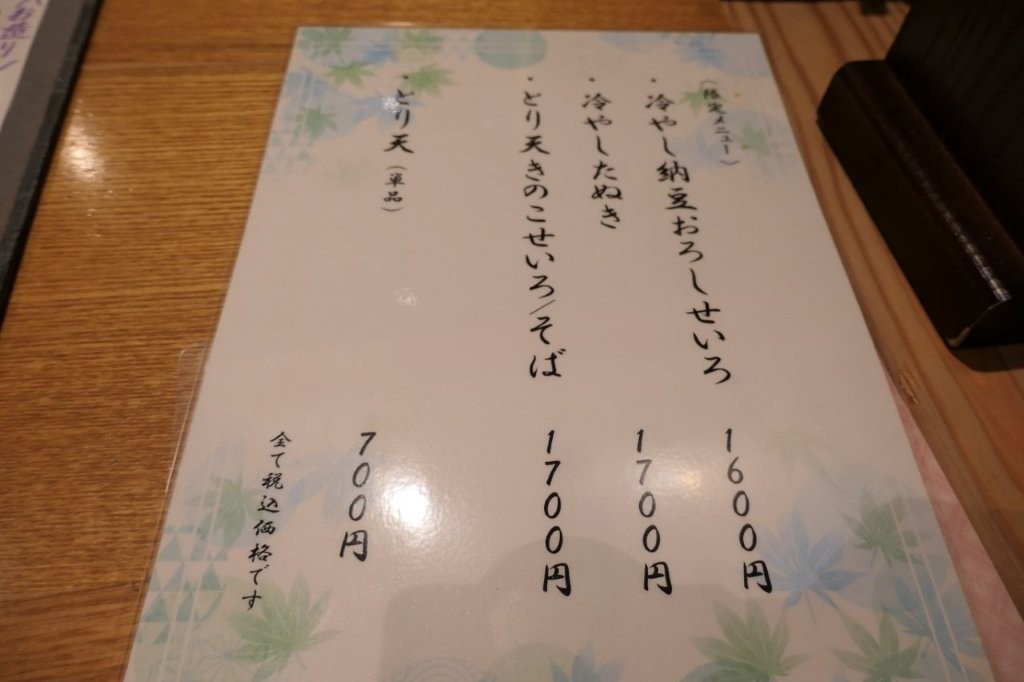 (限定メニュー)
・冷やし納豆おろしせいろ 1600円
・冷やしたぬき 1700円
・とり天きのこせいろ/そば 1700円
・とり天(単品) 700円
全て税込価格です